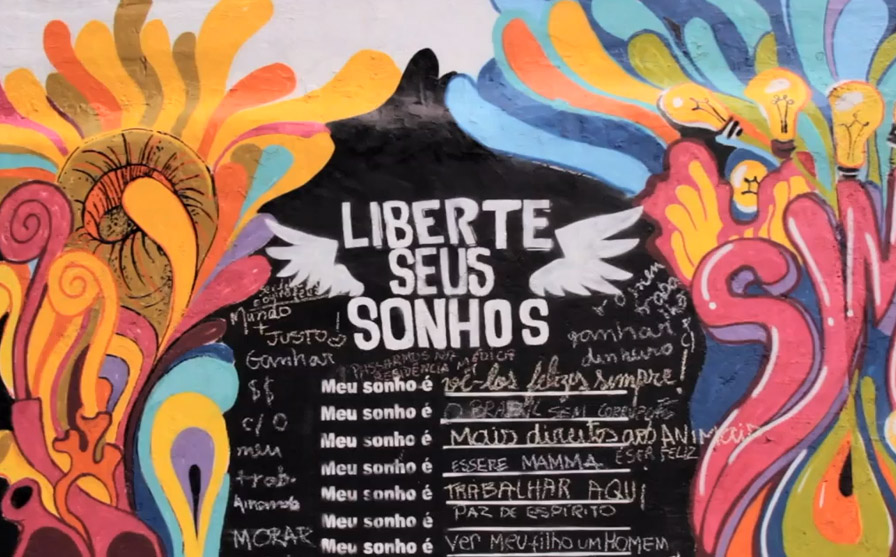 LIBERTE
SEUS
SONHOS
MUNDO
+
JUSTO
Ganhar
$$
c/ O
meu
trab.
MORAR
ganhar
dinheiro
PASSARMOS NA
RESIDÊNCIA MÉDICA
Meu sonho é vê-los felizes sempre!
Meu sonho é O BRASIL SEM CORRUPÇÃO
Meu sonho é Mais direitos aos ANIMAIS
E SER FELIZ
Meu sonho é ESSERE MAMMA
Meu sonho é TRABALHAR AQUI
Meu sonho é PAZ DE ESPÍRITO
Meu sonho é Ver Meu filho UM HOMEM